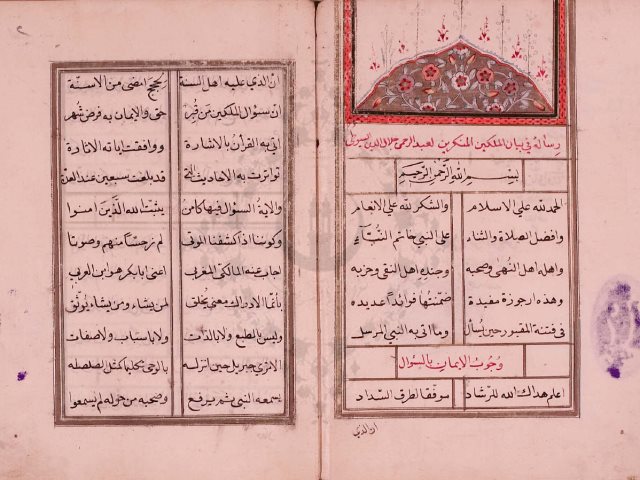 رسالة في بيان الملكين المنكرين لعبد الرحمن جلال الدين السيوطي
بسم الله الرحمن الرحيم
الحمد لله على الاسلام والشكر لله على الانعام
وافضل الصلاة والثناء على النبي خاتم النبآء
واهله اهل النهى وصحبه وجنده اهل التقى وحزبه
وهذه ارجوزة مفيدة ضمنتها فوائداً عديده
في فتنة المقبور حين يُسأل وما اتى به النبي المرسل
وجوب الايمان بالسؤال
اعلم هداك الله للرشاد موفقا لطرق السداد
ان الذي
٢
ان الذي عليه اهل السنة بحجج امضى من الاسنة
ان سؤال الملكين من قبر حق والايمان به فرض شهر
اتى به القرأن بالاشارة ووافقت اياته الاثارة
تواترت به الاحاديث التي قد بلغت سبعين عند العدة
والاية السؤال فيها كامن يثبت الله الذين امنوا
وكوننا اذا كشفنا الموتى لم نر منهم وصوتا
اجاب عنه المالكي المغربي اعنى ابابكر هو ابن العربي
بأنما الادراك معنى يخلق لمن يشاء ومن يشاء يوثق
وليس بالطبع ولا بالذات ولا باسباب ولا صفات
الا ترى جبريل حين انزله بالوحي كمثل الصلصله
يسمعه النبي ثم يرفع وصحبه من حوله لم يسمعوا